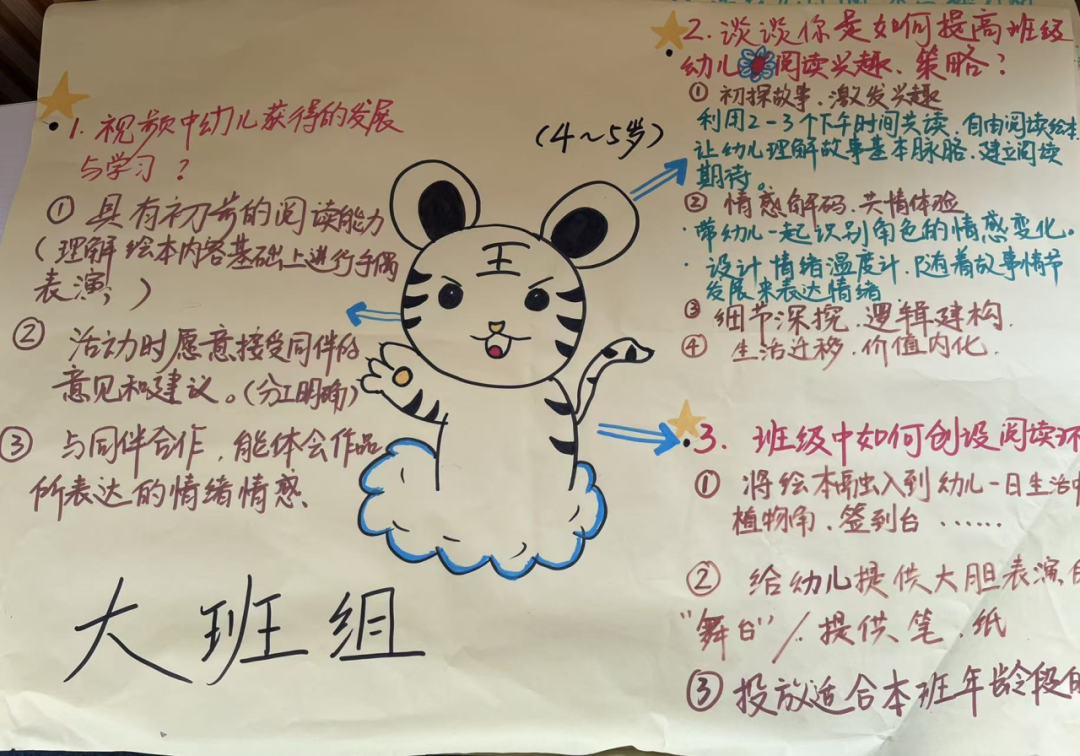 1. 视频中幼儿获得的发展
与学习？
① 具有初步的阅读能力
（理解绘本内容基础上进行手偶
表演；）
② 活动时愿意接受同伴的
意见和建议。（分工明确）
③ 与同伴合作，能体会作品
所表达的情绪情感、
大班组
（4～5岁）
王
2. 谈谈你是如何提高班级
幼儿阅读兴趣、策略？
① 初探故事、激发兴趣
利用2-3个下午时间共读、自由阅读绘本
让幼儿理解故事基本脉胳、建立阅读
期待。
② 情感解码、共情体验
·带幼儿一起识别角色的情感变化。
·设计情绪温度计，随着故事情节
发展来表达情绪
③ 细节深挖、逻辑建构.
④ 生活迁移、价值内化.
3. 班级中如何创设阅读环
① 将绘本融入到幼儿一日生活中
植物角、签到台……
② 给幼儿提供大胆表演
“舞台”/提供笔、纸
③ 投放适合本班年龄段的